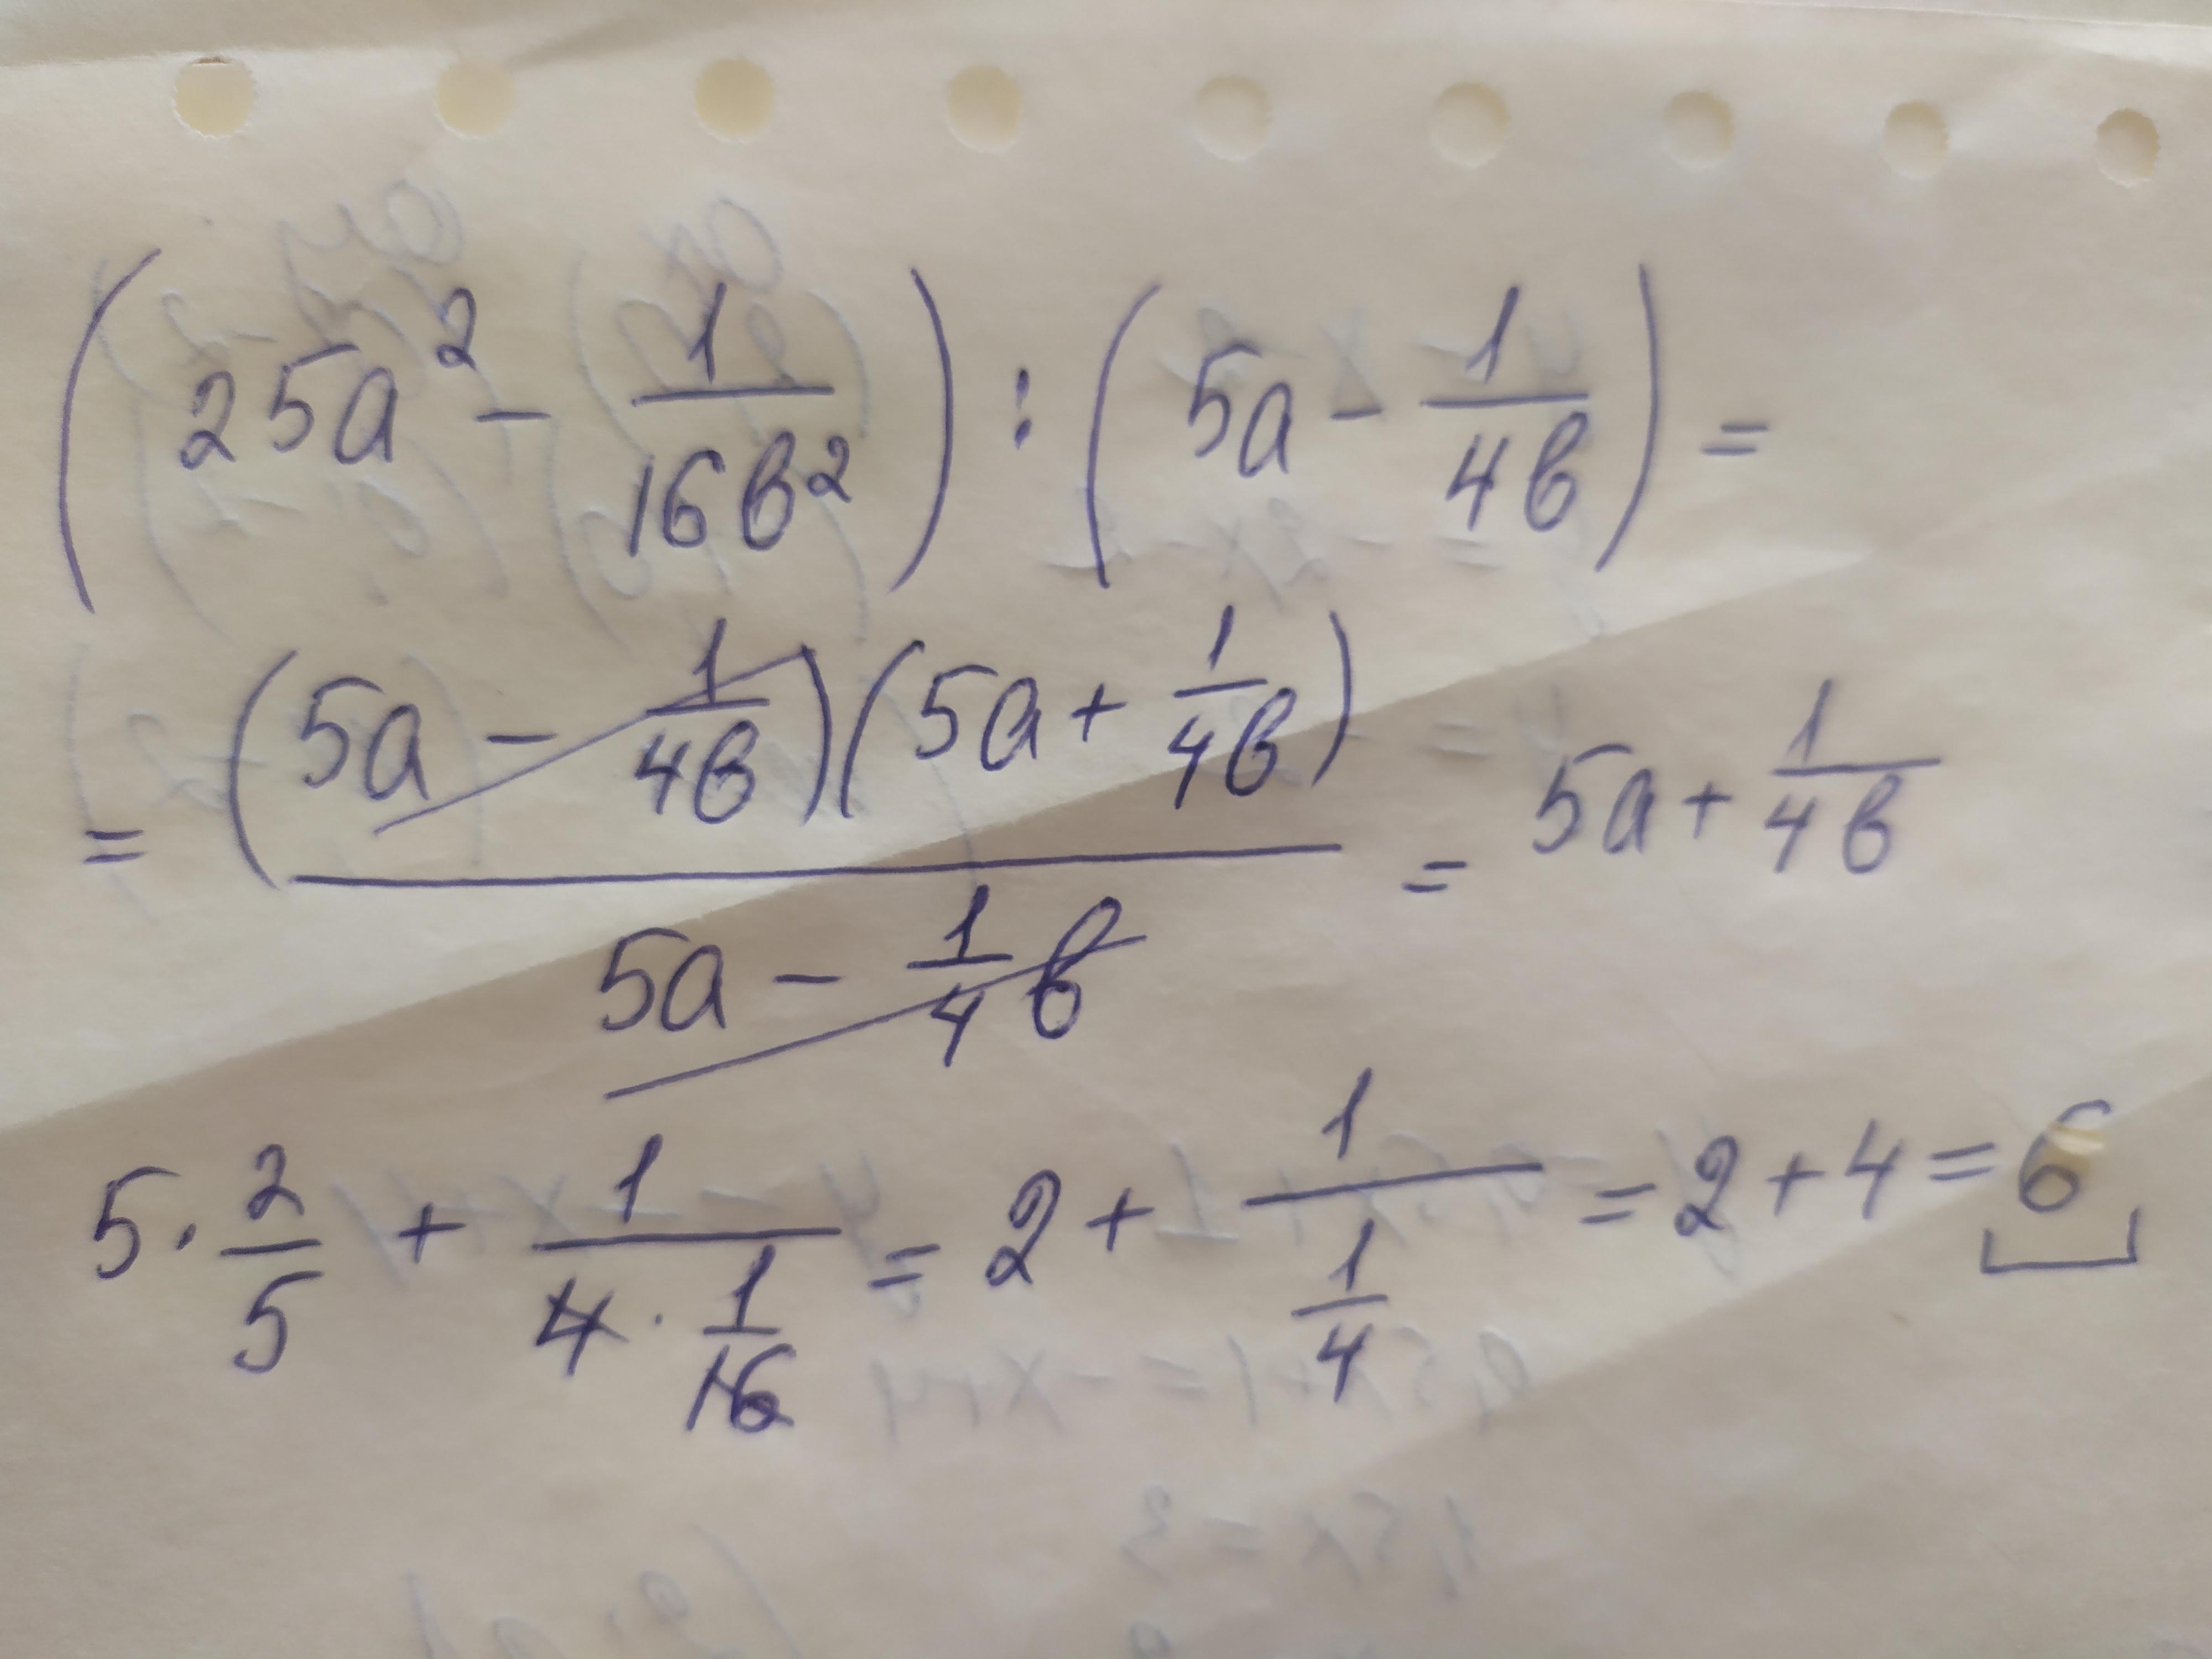 (25a² - 1/16в²) : (5a - 1/4в) =
= (5a - 1/4в)(5a + 1/4в) / 5a - 1/4 в = 5a + 1/4в
5 · 2/5 + 1/(4 · 1/16) = 2 + 1/(1/4) = 2 + 4 = 6